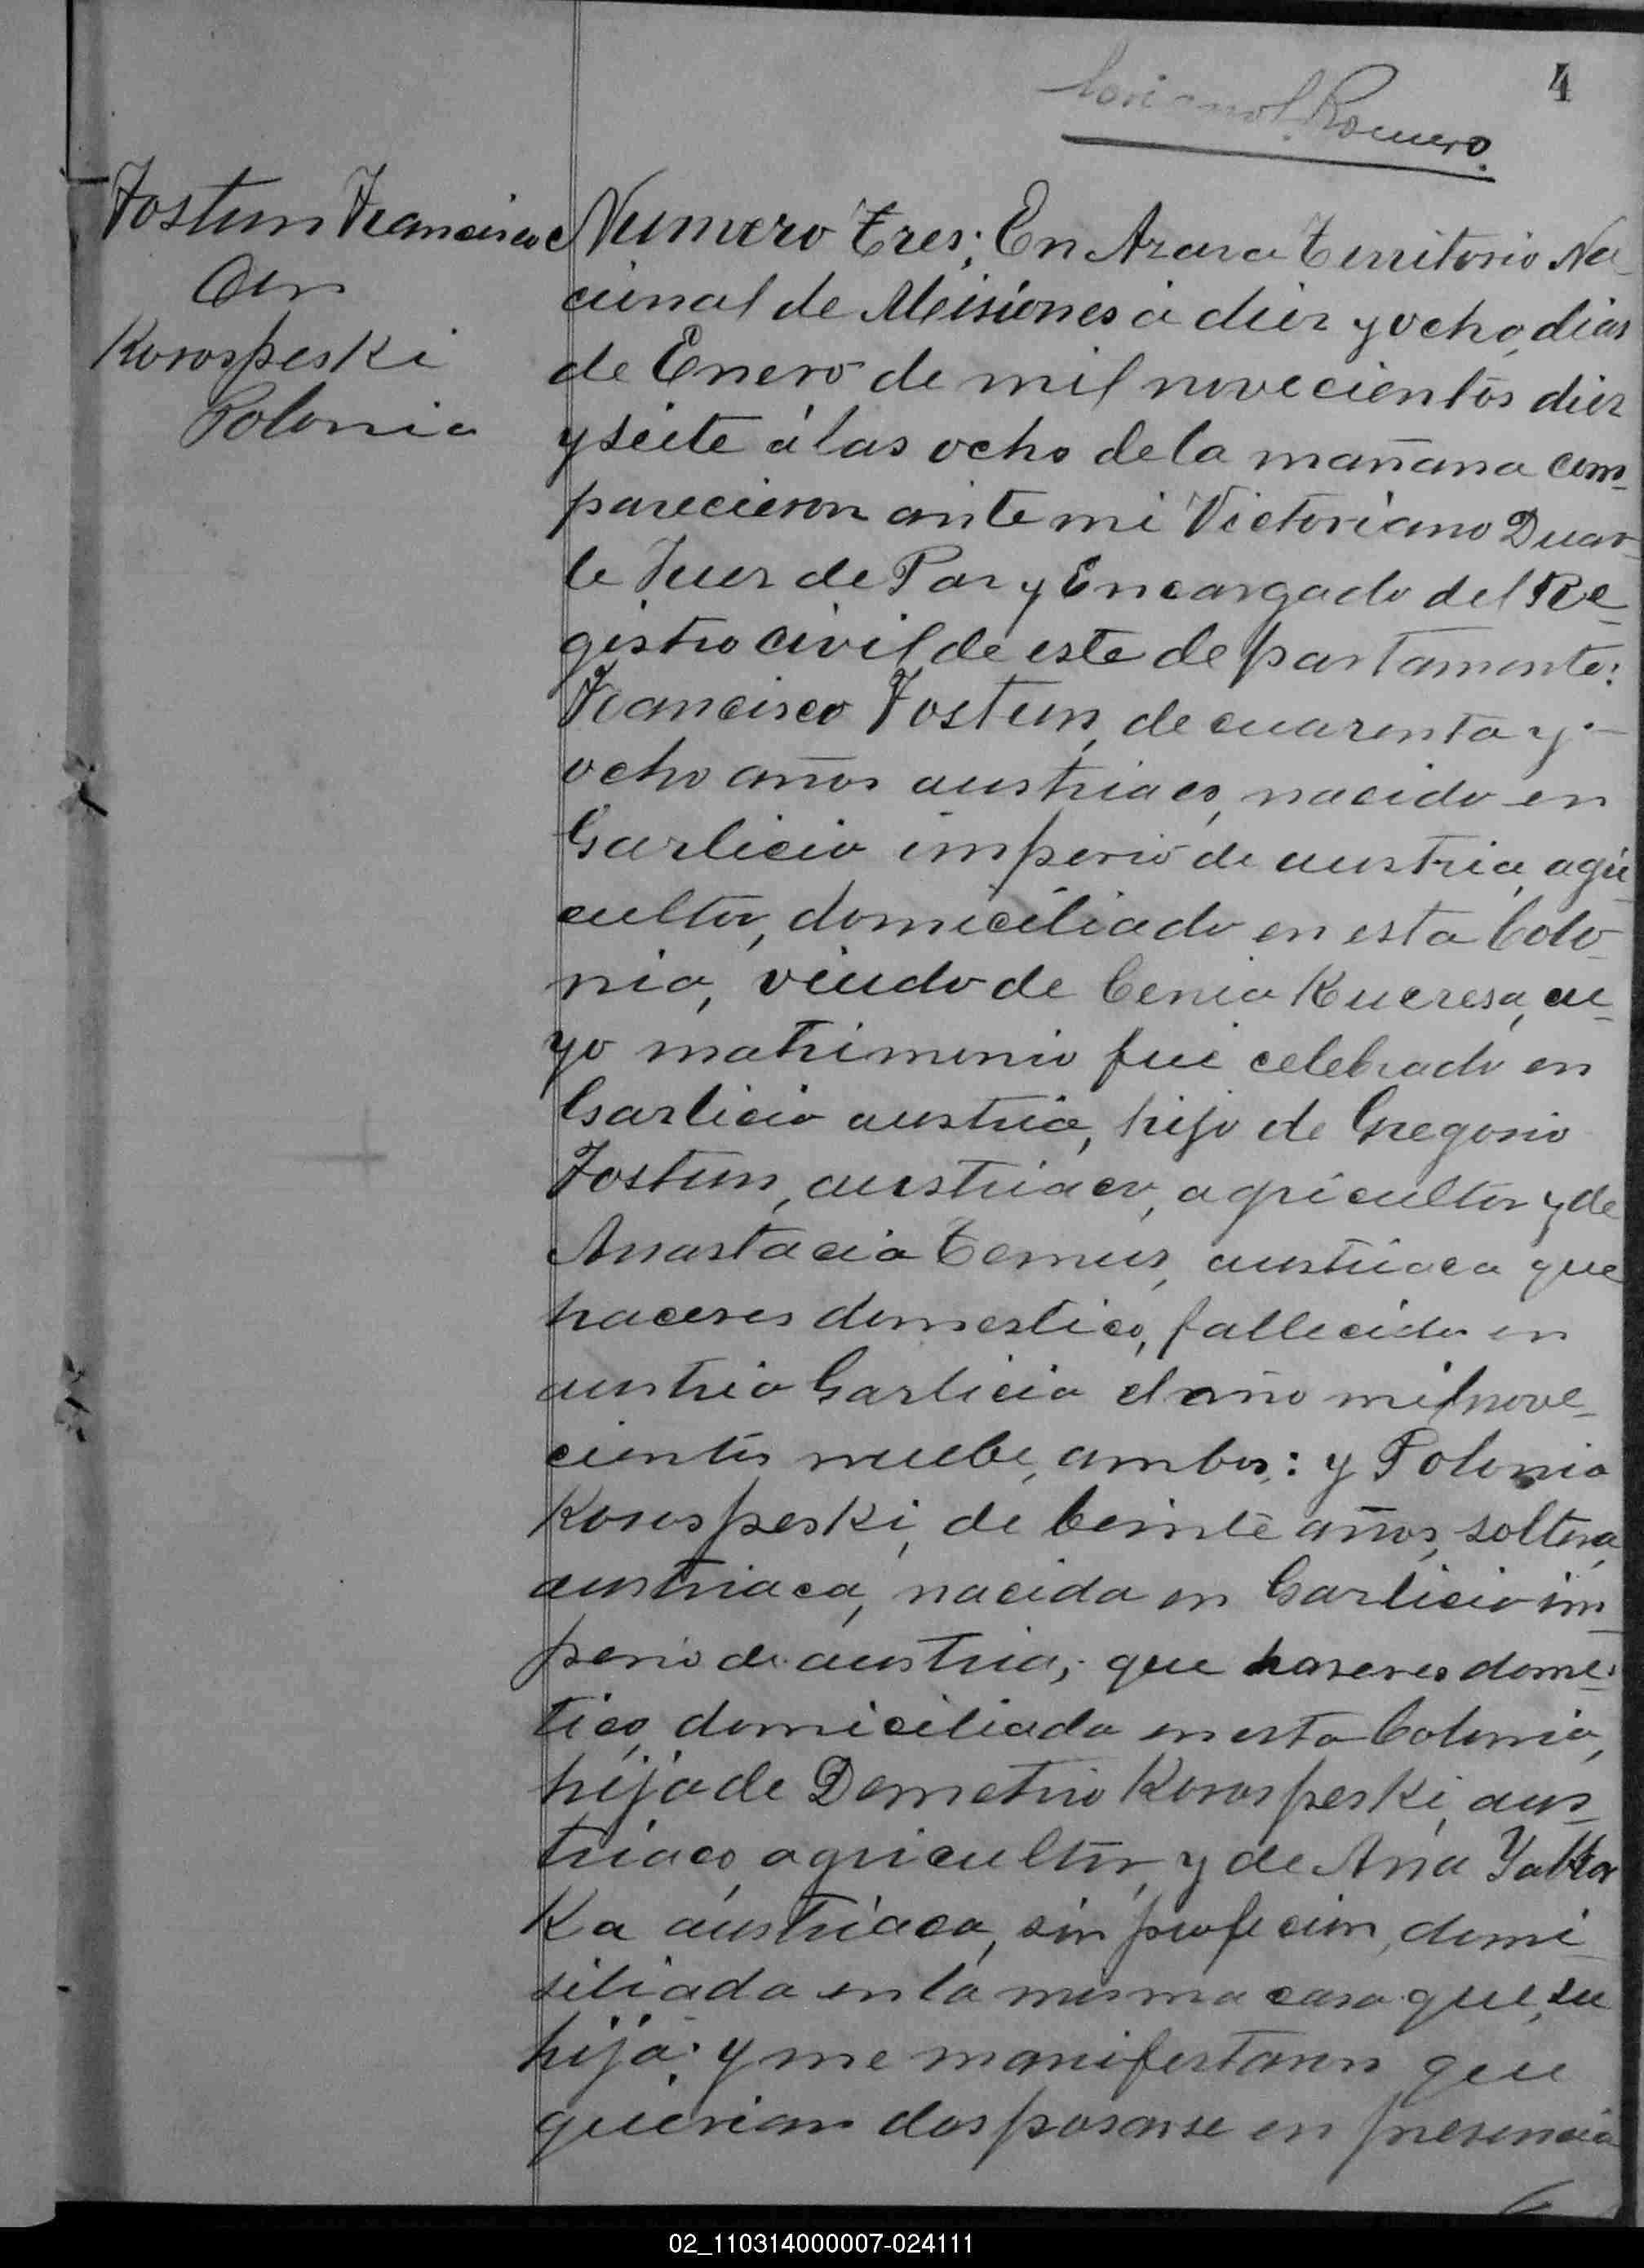 4
Romero.
Fostun Francisco
Con
Korospeski
Polonia
Numero tres; En Azara Territorio Na-
cional de Misiones á diez y ocho, dias
de Enero de mil novecientos diez
y seite á las ocho de la mañana com-
parecieron ante mi Victoriano Duar-
te Juez de Paz y Encargado del Re-
gistro civil de este departamento:
Francisco Fostun, de cuarenta y
ocho años austriaco, nacido en
Garlicia imperio de austria, agri-
cultor, domiciliado en esta Colo-
nia, viudo de Cenia Kucresa, cu-
yo matrimonio fué celebrado en
Garlicia austria, hijo de Gregorio
Fostun, austriaco, agricultor y de
Anastacia Temus, austriaca que
haceres domestico, fallecido en
austria Garlicia el año mil nove-
cientos nuebe, ambos: y Polonia
Korospeski, de beinte años, soltera,
austriaca, nacida en Garlicia im-
perio de austria; que haseres domes-
tico, domiciliada en esta Colonia,
hija de Demetrio Korospeski, aus-
triaco, agricultor, y de Ana
Ka austriaca, sin profecion, domi-
siliada en la misma casa que, su
hija: y me manifestaron que
querian desposarse en presencia
02_110314000007-024111